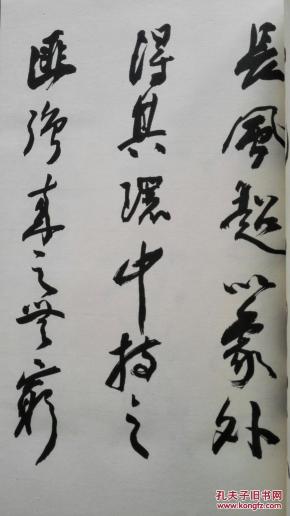 長風超以象外
得其環中持之
匪強来之無窮
孔夫子旧书网